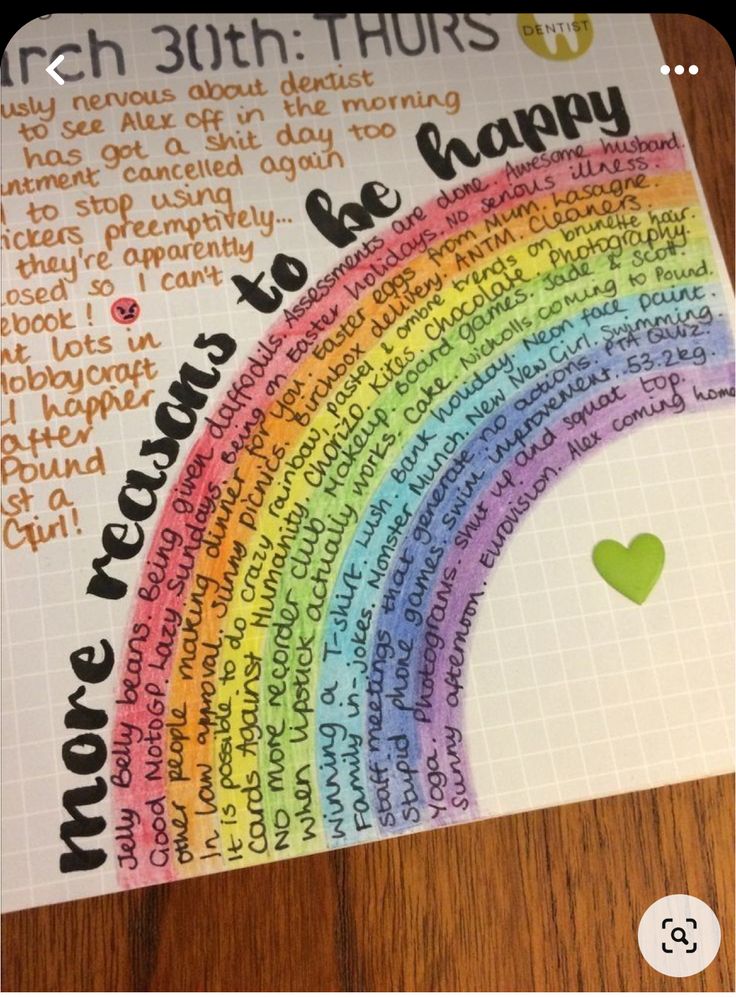 arch 30th: THURS
DENTIST
usly nervous about dentist
to see Alex off in the morning
has got a shit day too
ntment cancelled again
to stop using
ickers preemptively...
they're apparently
osed so I can't
ebook!
nt lots in
Hobbycraft
I happier
after
Pound
st a
Girl!
more reasons to be happy
Jelly Belly beans. Being given daffodils. Assessments are done. Awesome husband.
Good MotoGP. Lazy Sundays. Being on Easter holidays. No serious illness.
Other people making dinner for you. Easter eggs from Mum. Lasagne.
In law approval. Sunny picnics. Birchbox delivery. ANTM. Cleaners.
It is possible to do crazy rainbow, pastel & ombre trends on brunette hair.
Cards Against Humanity. Chorizo. Kites. Chocolate. Photography.
No more recorder club. Makeup. Board games. Jade & Scott.
When lipstick actually works. Cake. Nicholls coming to Pound.
Winning a T-shirt. Lush. Bank holiday. Neon face paint.
Family in-jokes. Monster Munch. New New Girl. Swimming.
Staff meetings that generate no actions. PTA Quiz.
Stupid phone games. Swim improvement. 53.2kg.
Yoga. Photograms. Shut up and squat top.
Sunny afternoon. Eurovision. Alex coming home